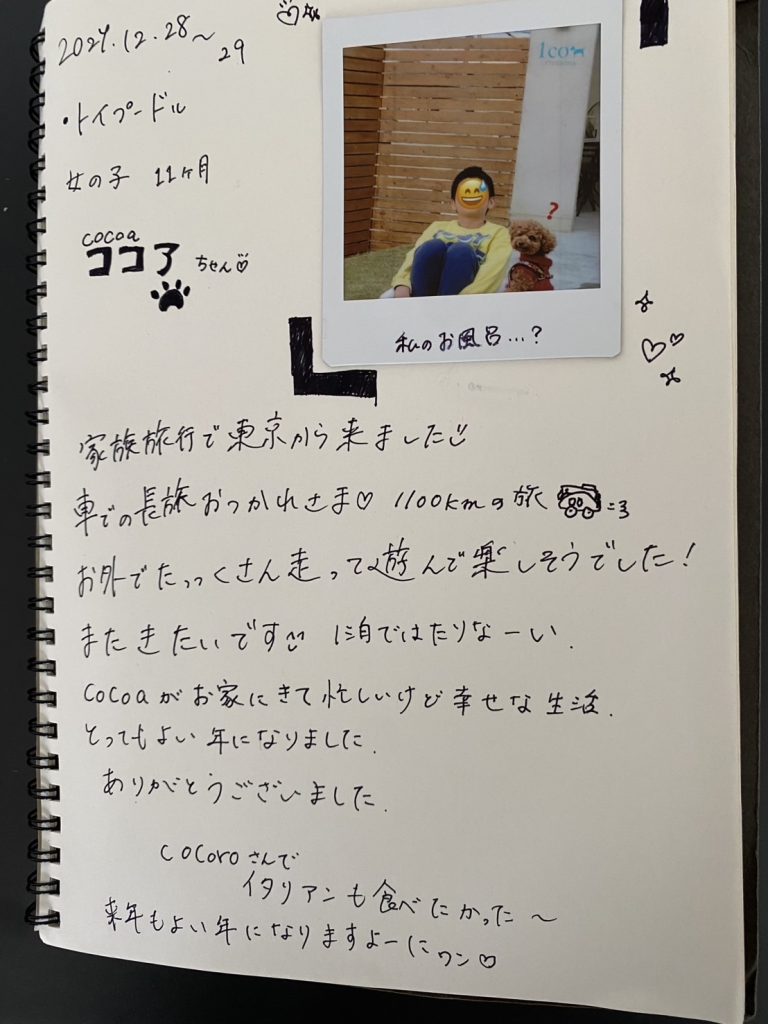 2021.12.28〜29
・トイプードル
女の子 11ヶ月
cocoa
ココア ちゃん
1co
?
私のお風呂…?
家族旅行で東京から来ました
車での長旅おつかれさま♡ 1100kmの旅
お外でたっくさん走って遊んで楽しそうでした!
またきたいです 1泊ではたりなーい.
cocoaがお家にきて忙しいけど幸せな生活.
とってもよい年になりました.
ありがとうございました.
cocoroさんで
イタリアンも食べたかった〜
来年もよい年になりますよーに
ワン♡